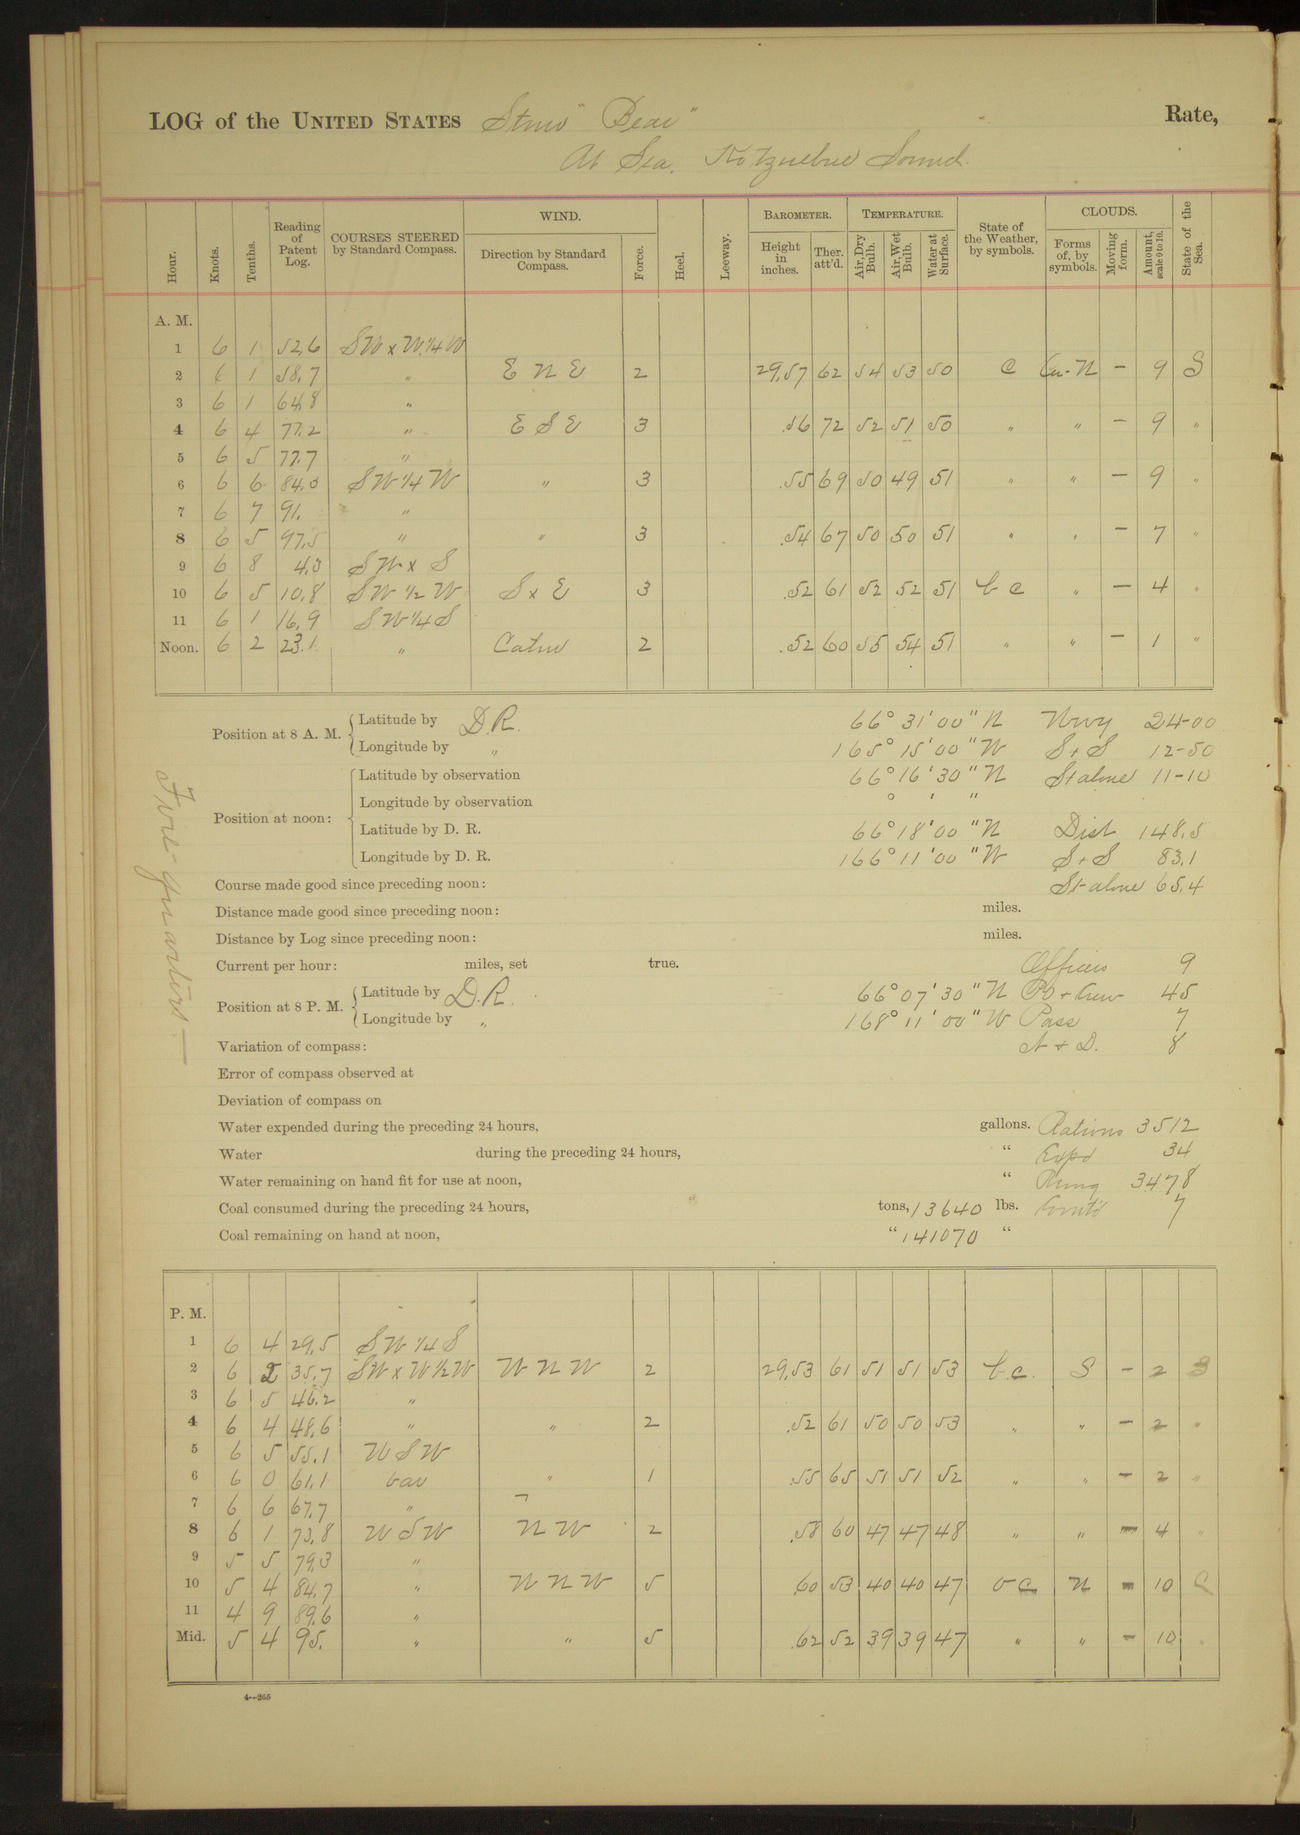 LOG of the UNITED STATES Stmr "Bear" Rate,
At Sea. Kotzuebue Sound.
Hour. Knots. Tenths. Reading of Patent Log. COURSES STEERED by Standard Compass. WIND. Direction by Standard Compass. Force. Heel. Leeway. BAROMETER. Height in inches. Ther. att'd. TEMPERATURE. Air, Dry Bulb. Air, Wet Bulb. Water at Surface. State of the Weather, by symbols. CLOUDS. Forms of, by symbols. Moving form. Amount, scale 0 to 10. State of the Sea.
A. M.
1 6 1 52.6 SW x W 1/4 W
2 6 1 58.7 " E N E 2 29.57 62 54 53 50 C Cu-N - 9 S
3 6 1 64.8 "
4 6 4 77.2 " E S E 3 .56 72 52 51 50 " " - 9 "
5 6 5 77.7 "
6 6 6 84.3 SW 1/4 W " 3 .55 69 50 49 51 " " - 9 "
7 6 7 91. "
8 6 5 97.5 " " 3 .54 67 50 50 51 " " - 7 "
9 6 8 4.3 SW x S
10 6 5 10.8 SW 1/2 W S x E 3 .52 61 52 52 51 b c " - 4 "
11 6 1 16.9 SW 1/4 S
Noon. 6 2 23.1 " Calm 2 .52 60 55 54 51 " " - 1 "
Position at 8 A. M. Latitude by D.R. 66° 31' 00" N Nwy 24-00
Longitude by " 165° 15' 00" W S+S 12-50
Position at noon: Latitude by observation 66° 16' 30" N St alone 11-10
Longitude by observation ° ' "
Latitude by D. R. 66° 18' 00" N Dist 148.5
Longitude by D. R. 166° 11' 00" W S+S 83.1
Course made good since preceding noon: St alone 65.4
Distance made good since preceding noon: miles.
Distance by Log since preceding noon: miles.
Current per hour: miles, set true. Officers 9
Position at 8 P. M. Latitude by D.R. 66° 07' 30" N PO + Crew 45
Longitude by " 168° 11' 00" W Pass 7
Variation of compass: N + D. 8
Error of compass observed at
Deviation of compass on
Water expended during the preceding 24 hours, gallons. Rations 3512
Water during the preceding 24 hours, " Expd 34
Water remaining on hand fit for use at noon, " Rmng 3478
Coal consumed during the preceding 24 hours, tons, 13640 lbs. 7
Coal remaining on hand at noon, " 141070 "
Fire-quarters—
P. M.
1 6 4 29.5 SW 1/4 S
2 6 2 35.7 SW x W 1/2 W W N W 2 29.53 61 51 51 53 b.c. S - 2 S
3 6 5 46.2 "
4 6 4 48.6 " " 2 .52 61 50 50 53 " " - 2 "
5 6 5 55.1 W S W
6 6 0 61.1 var " 1 .55 65 51 51 52 " " - 2 "
7 6 6 67.7 "
8 6 1 73.8 W S W N W 2 .58 60 47 47 48 " " - 4 "
9 5 5 79.3 "
10 5 4 84.7 " W N W 5 .60 53 40 40 47 o c N - 10 C
11 4 9 89.6 "
Mid. 5 4 95. " " 5 .62 52 39 39 47 " " - 10
4—265